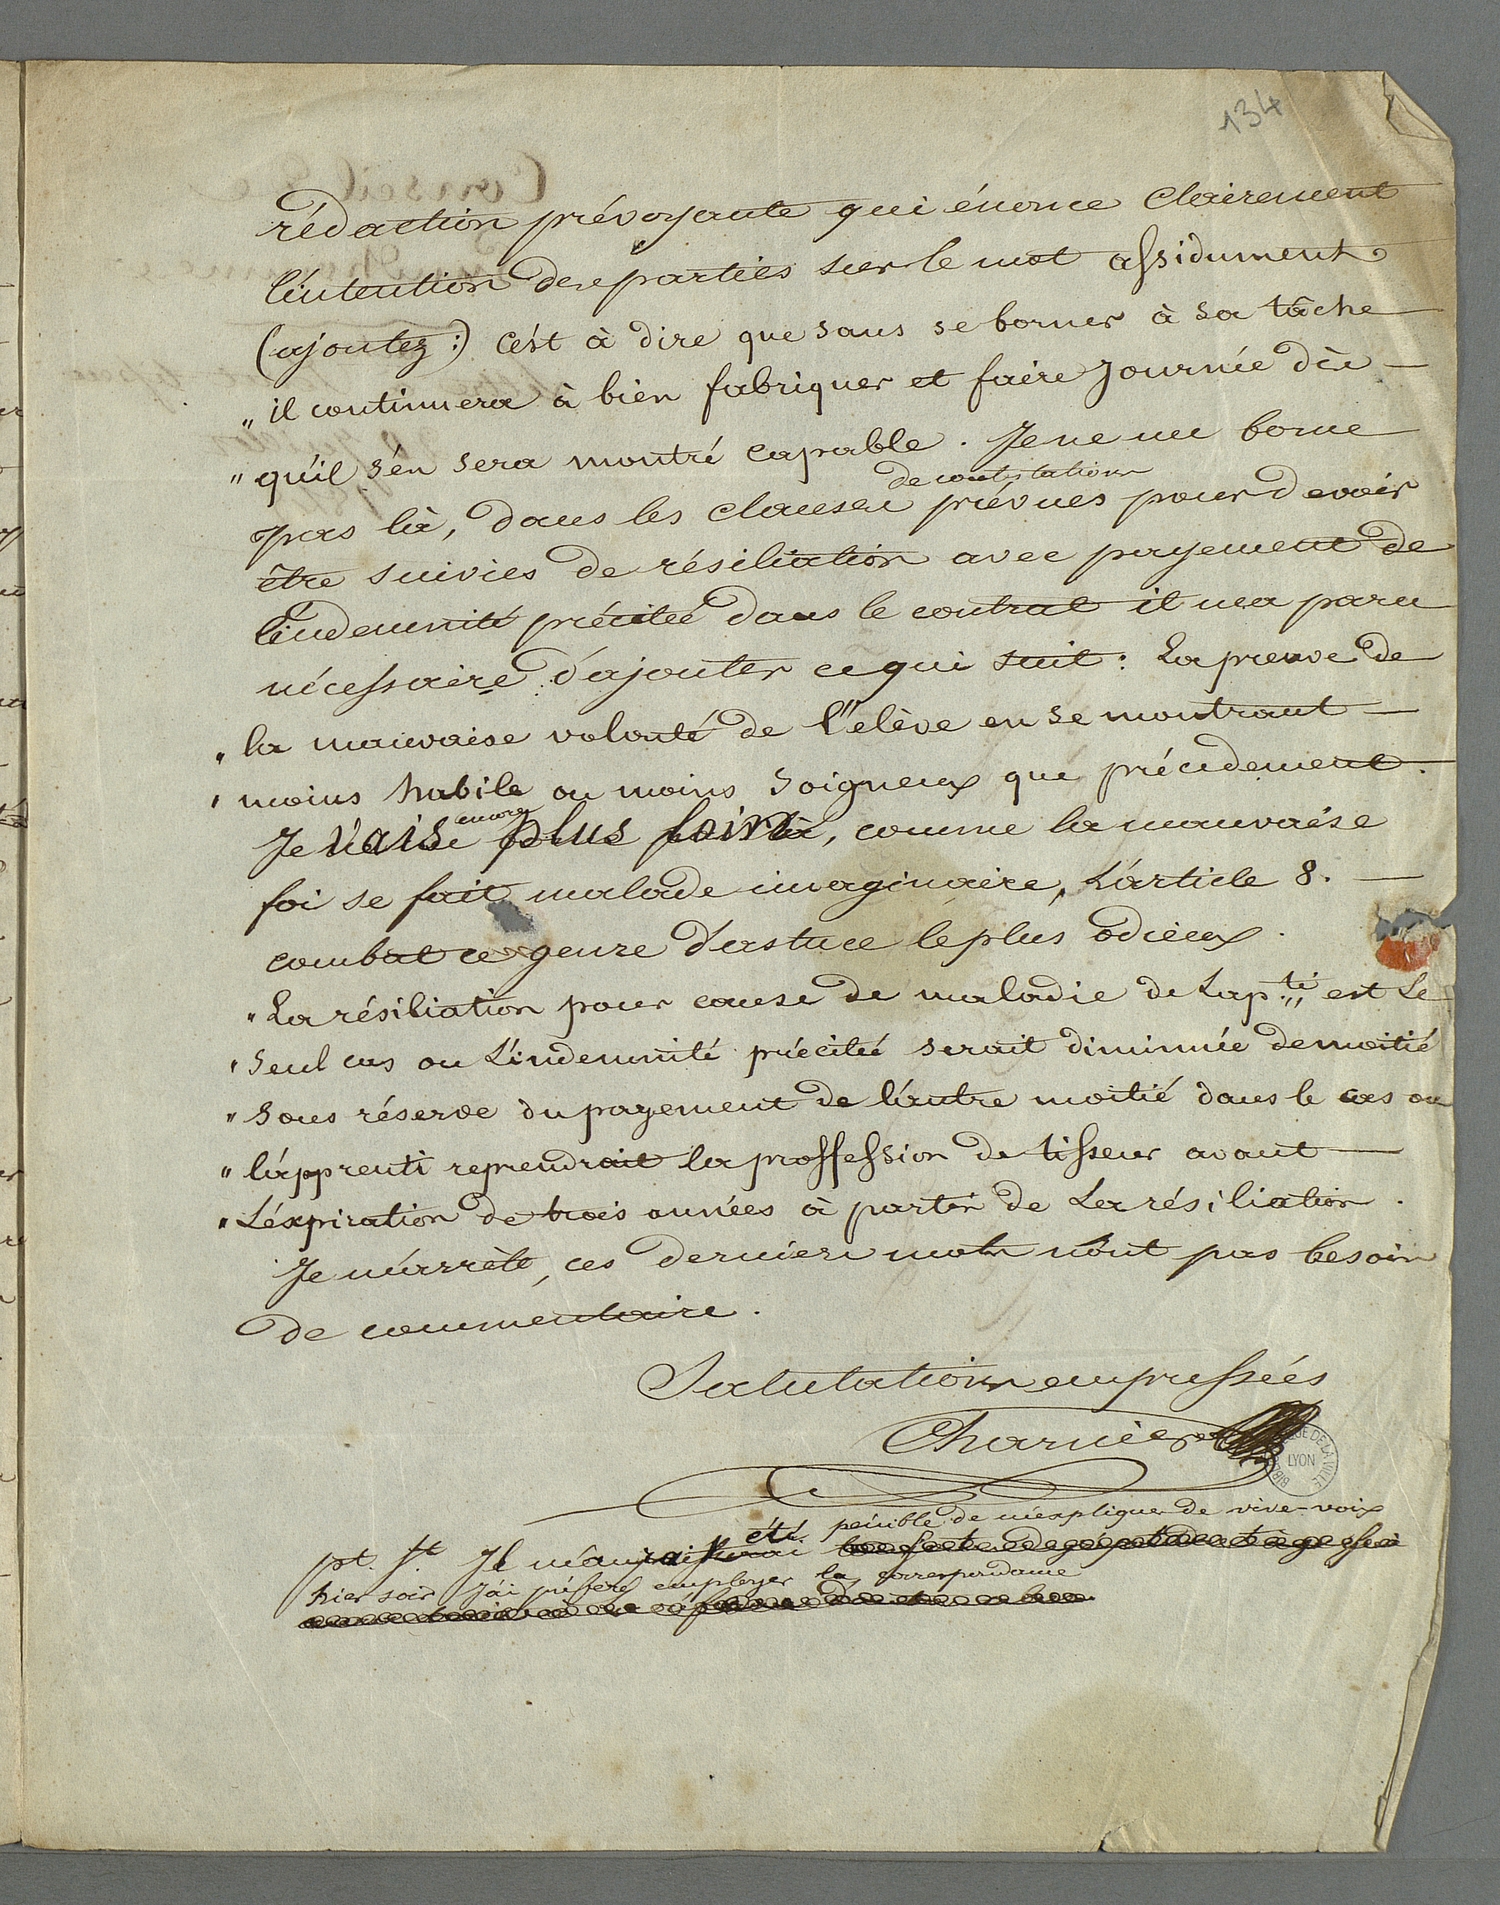 134
rédaction prévoyante qui énonce clairement
l'intention des parties sur le mot assidument
(ajoutez:) c'est à dire que sans se borner à sa tâche
" il continuera à bien fabriquer et faire journée dès
" qu'il s'en sera montré capable. Je ne me borne
de contestations
pas là, dans les clauses prévues pour devoir
être suivies de résiliation avec payement de
l'indemnité précitée dans le contrat il m'a paru
nécessaire d'ajouter ce qui suit: La preuve de
" la mauvaise volonté de l'élève en se montrant
" moins habile ou moins soigneux que précédement.
encore
Je vais plus loin, comme la mauvaise
foi se fait malade imaginaire, L'article 8.
combat ce genre d'astuce le plus odieux.
" La résiliation pour cause de maladie de L'ap.ti est Le
" seul cas ou L'indemnité précitée serait diminuée de moitié
" sous réserve du payement de l'autre moitié dans le cas ou
" l'apprenti reprendrait la proffession de tisseur avant
" L'éxpiration de trois années à partir de La résiliation.
Je m'arrète, ces derniers mots n'ont pas besoin
de commentaire.
Salutations empressées
Charnier
BIBLIOTHEQUE DE LA VILLE LYON
pt. St. Il m'aurait été pénible de m'expliquer de vive-voix
hier soir j'ai préféré employer la correspondance